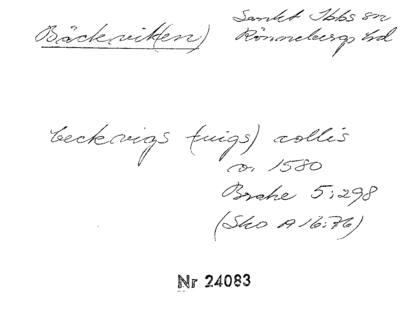 Bäckvik(en)
Sankt Ibbs sn
Rönnebergs hd
beckvigs (uigs) collis
o. 1580
Brahe 5:298
(Sko A 16:76)
Nr 24083